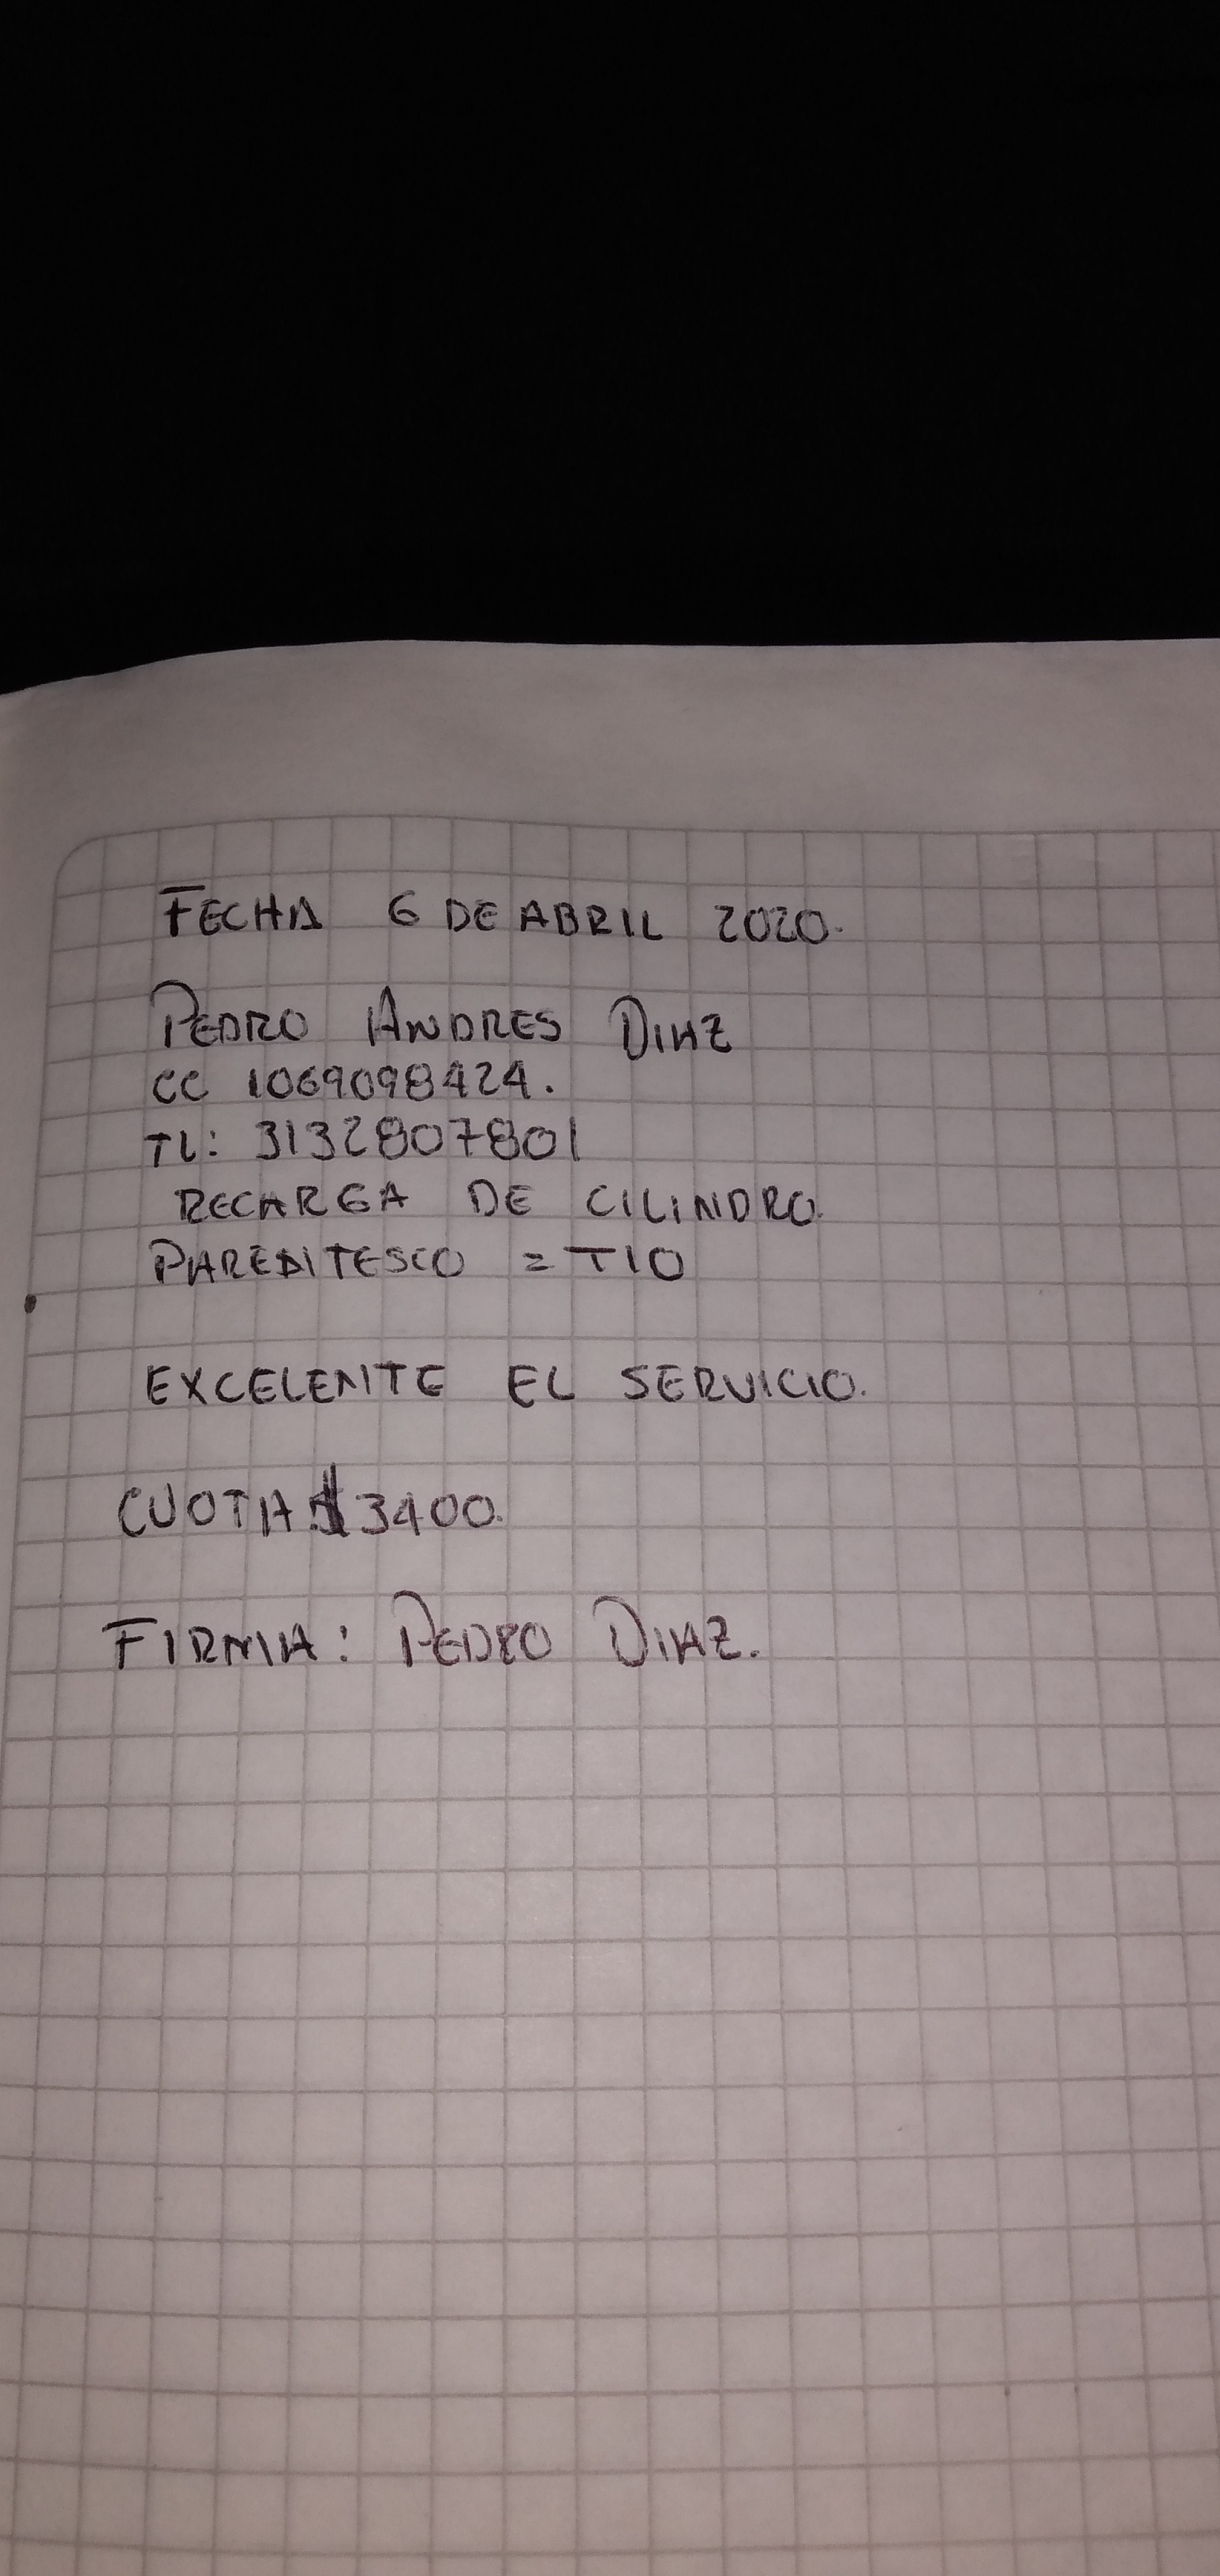 FECHA 6 DE ABRIL 2020.
PEDRO ANDRES DIAZ
CC 1069098424.
TL: 3132807801
RECARGA DE CILINDRO.
PARENTESCO = TIO
EXCELENTE EL SERVICIO.
CUOTA $3400.
FIRMA: PEDRO DIAZ.